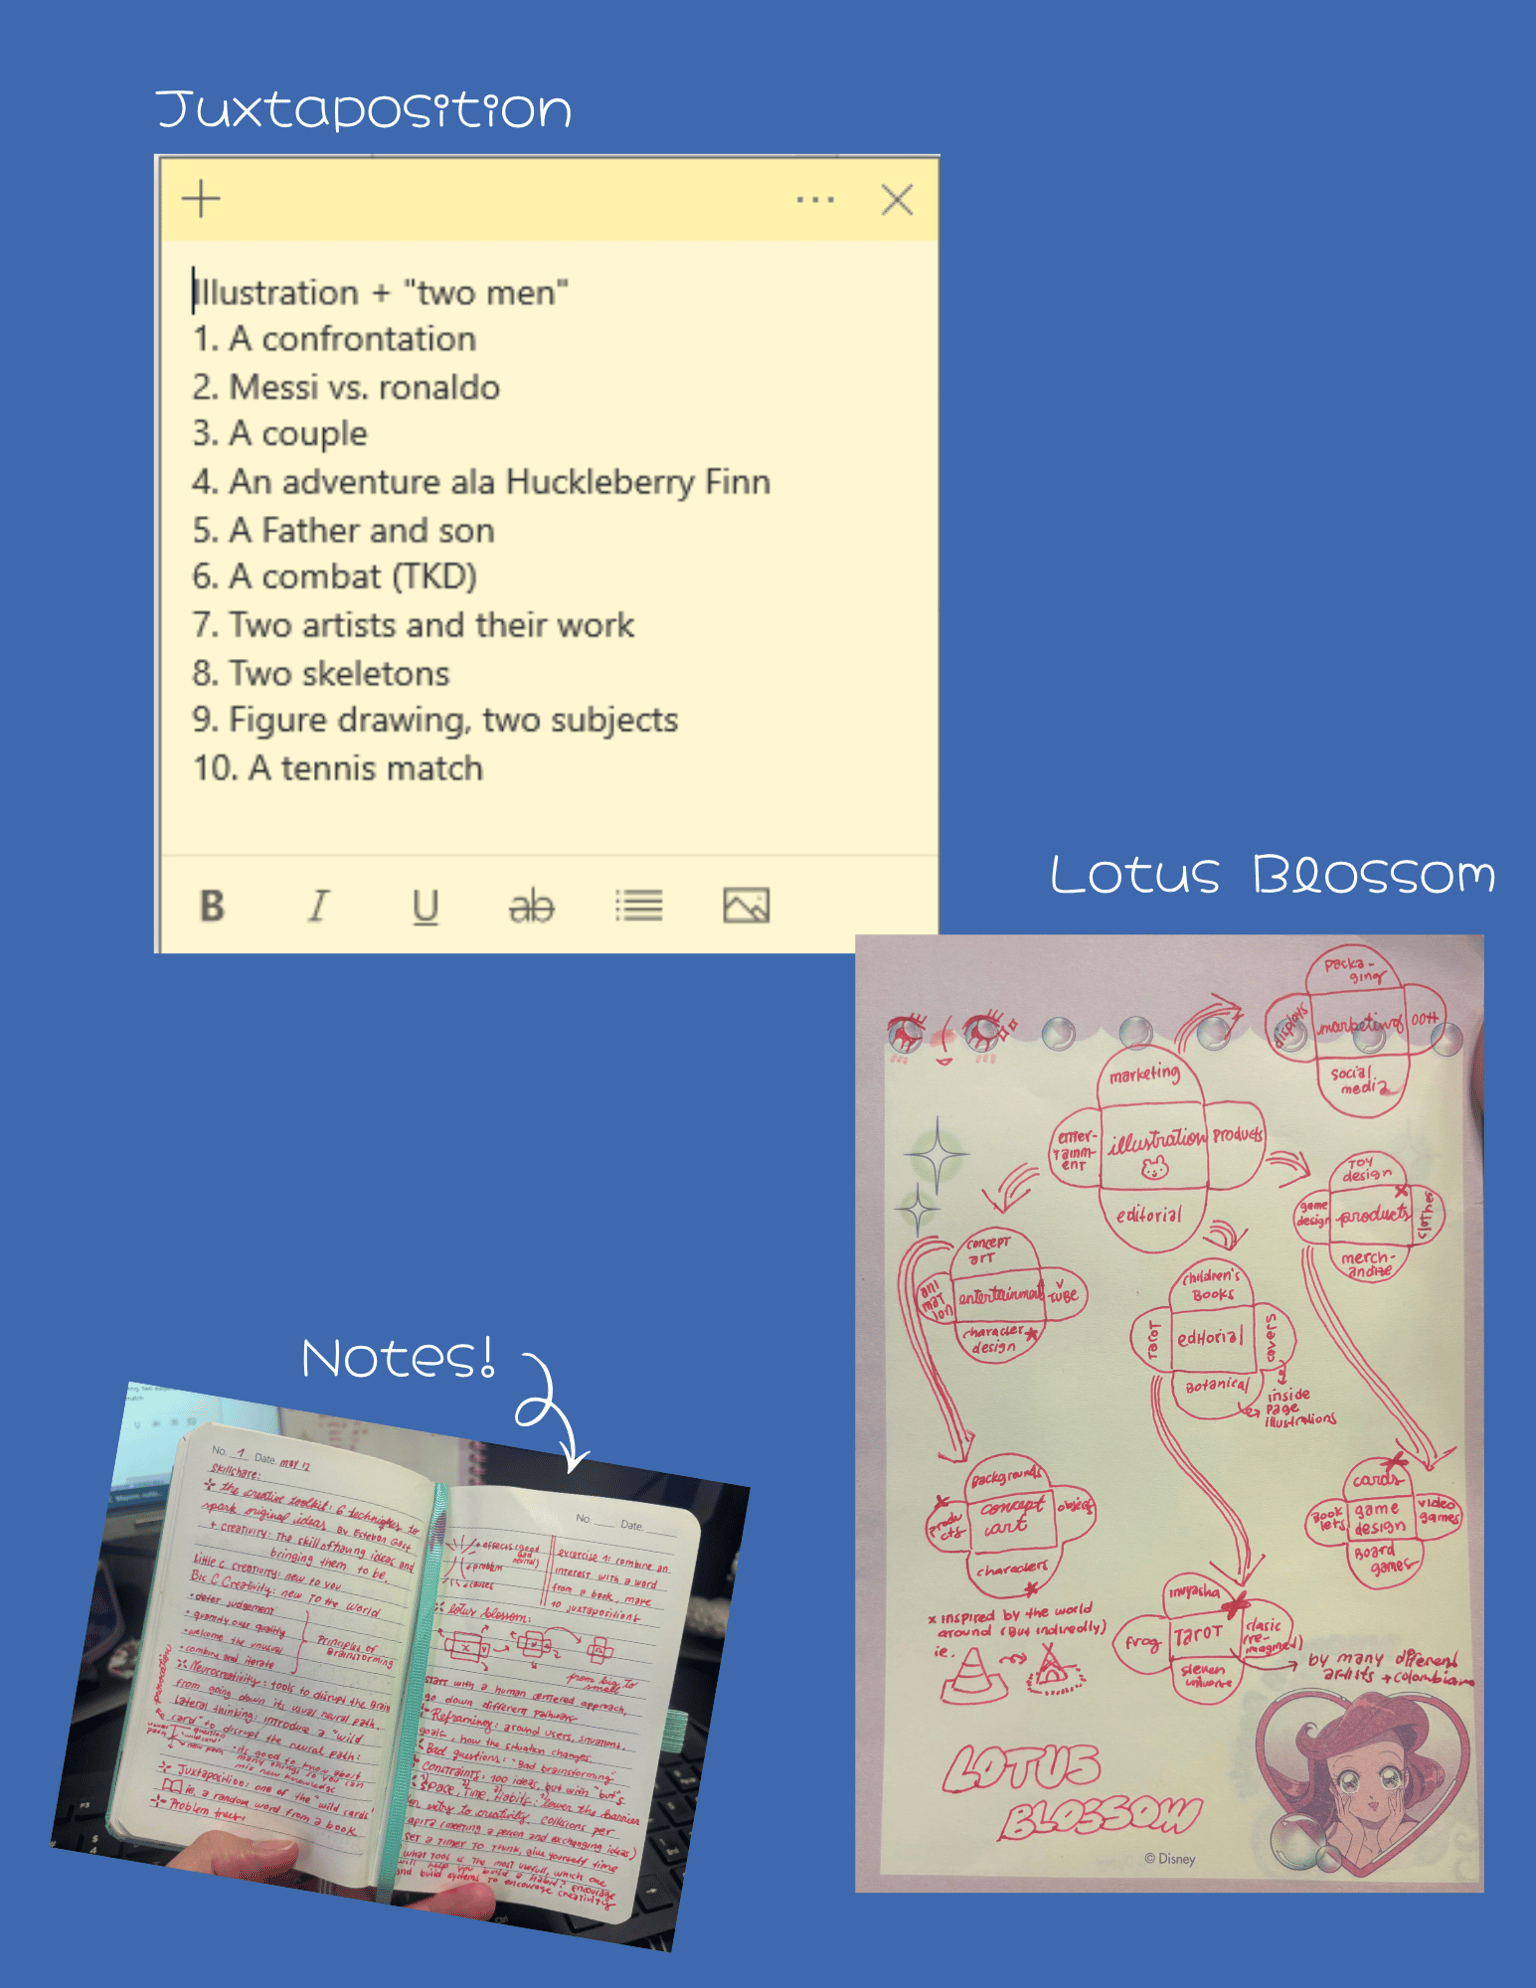 Juxtaposition
Illustration + "two men"
1. A confrontation
2. Messi vs. ronaldo
3. A couple
4. An adventure ala Huckleberry Finn
5. A Father and son
6. A combat (TKD)
7. Two artists and their work
8. Two skeletons
9. Figure drawing, two subjects
10. A tennis match
B I U ab
Lotus Blossom
packa-
ging
displays
marketing
OOH
social
media
marketing
enter-
tainm-
ent
illustration
products
editorial
toy
design
game
design
products
clothes
merch-
andise
concept
art
ani
mat
ion
entertainment
V
TUBE
character
design
children's
Books
TAROT
editorial
covers
Botanical
inside
page
illustrations
Backgrounds
produ
cts
concept
art
objects
characters
cards
Book
lets
game
design
video
games
Board
games
inuyasha
frog
TAROT
clasic
(re-
imagined)
steven
universe
x inspired by the world
around (But indirectly)
ie.
by many different
artists + colombians
LOTUS
BLOSSOM
© Disney
Notes!
No. 1 Date. may 12
skillshare:
the creative toolkit: 6 techniques to
spark original ideas By Esteban Gast
+ creativity: The skill of having ideas and
bringing them to be.
Little C creativity: new to you
BIG C Creativity: new TO the World
• defer judgement
• quantity over quality
• welcome the unusual
• combine and iterate
Principles of
Brainstorming
Neurocreativity: tools to disrupt the Brain
from going down its usual neural path.
Lateral thinking: introduce a "wild
card" to disrupt the neural path:
it's good to know about
many things so you can
mix new knowledge
Juxtaposition: one of the "wild cards"
ie. a random word from a book
Problem trees:
No. Date.
+ effects (good
bad
neutral)
+ problem
+ causes
excercise 1: combine an
interest with a word
from a book, make
10 juxtapositions
lotus blossom:
from big to
small
start with a human centered approach,
go down different pathways
Reframing: around users, situations,
goals, how the situation changes
Bad questions: "Bad brainstorming"
Constraints: 100 ideas, but with "but"s
Space, Time, Habits: lower the barrier
entry to creativity. Collisions per
(meeting a person and exchanging ideas)
set a timer to think, give yourself time
what tool is the most usefull, which one
will help you build a habit? encourage
and build systems to encourage creativity